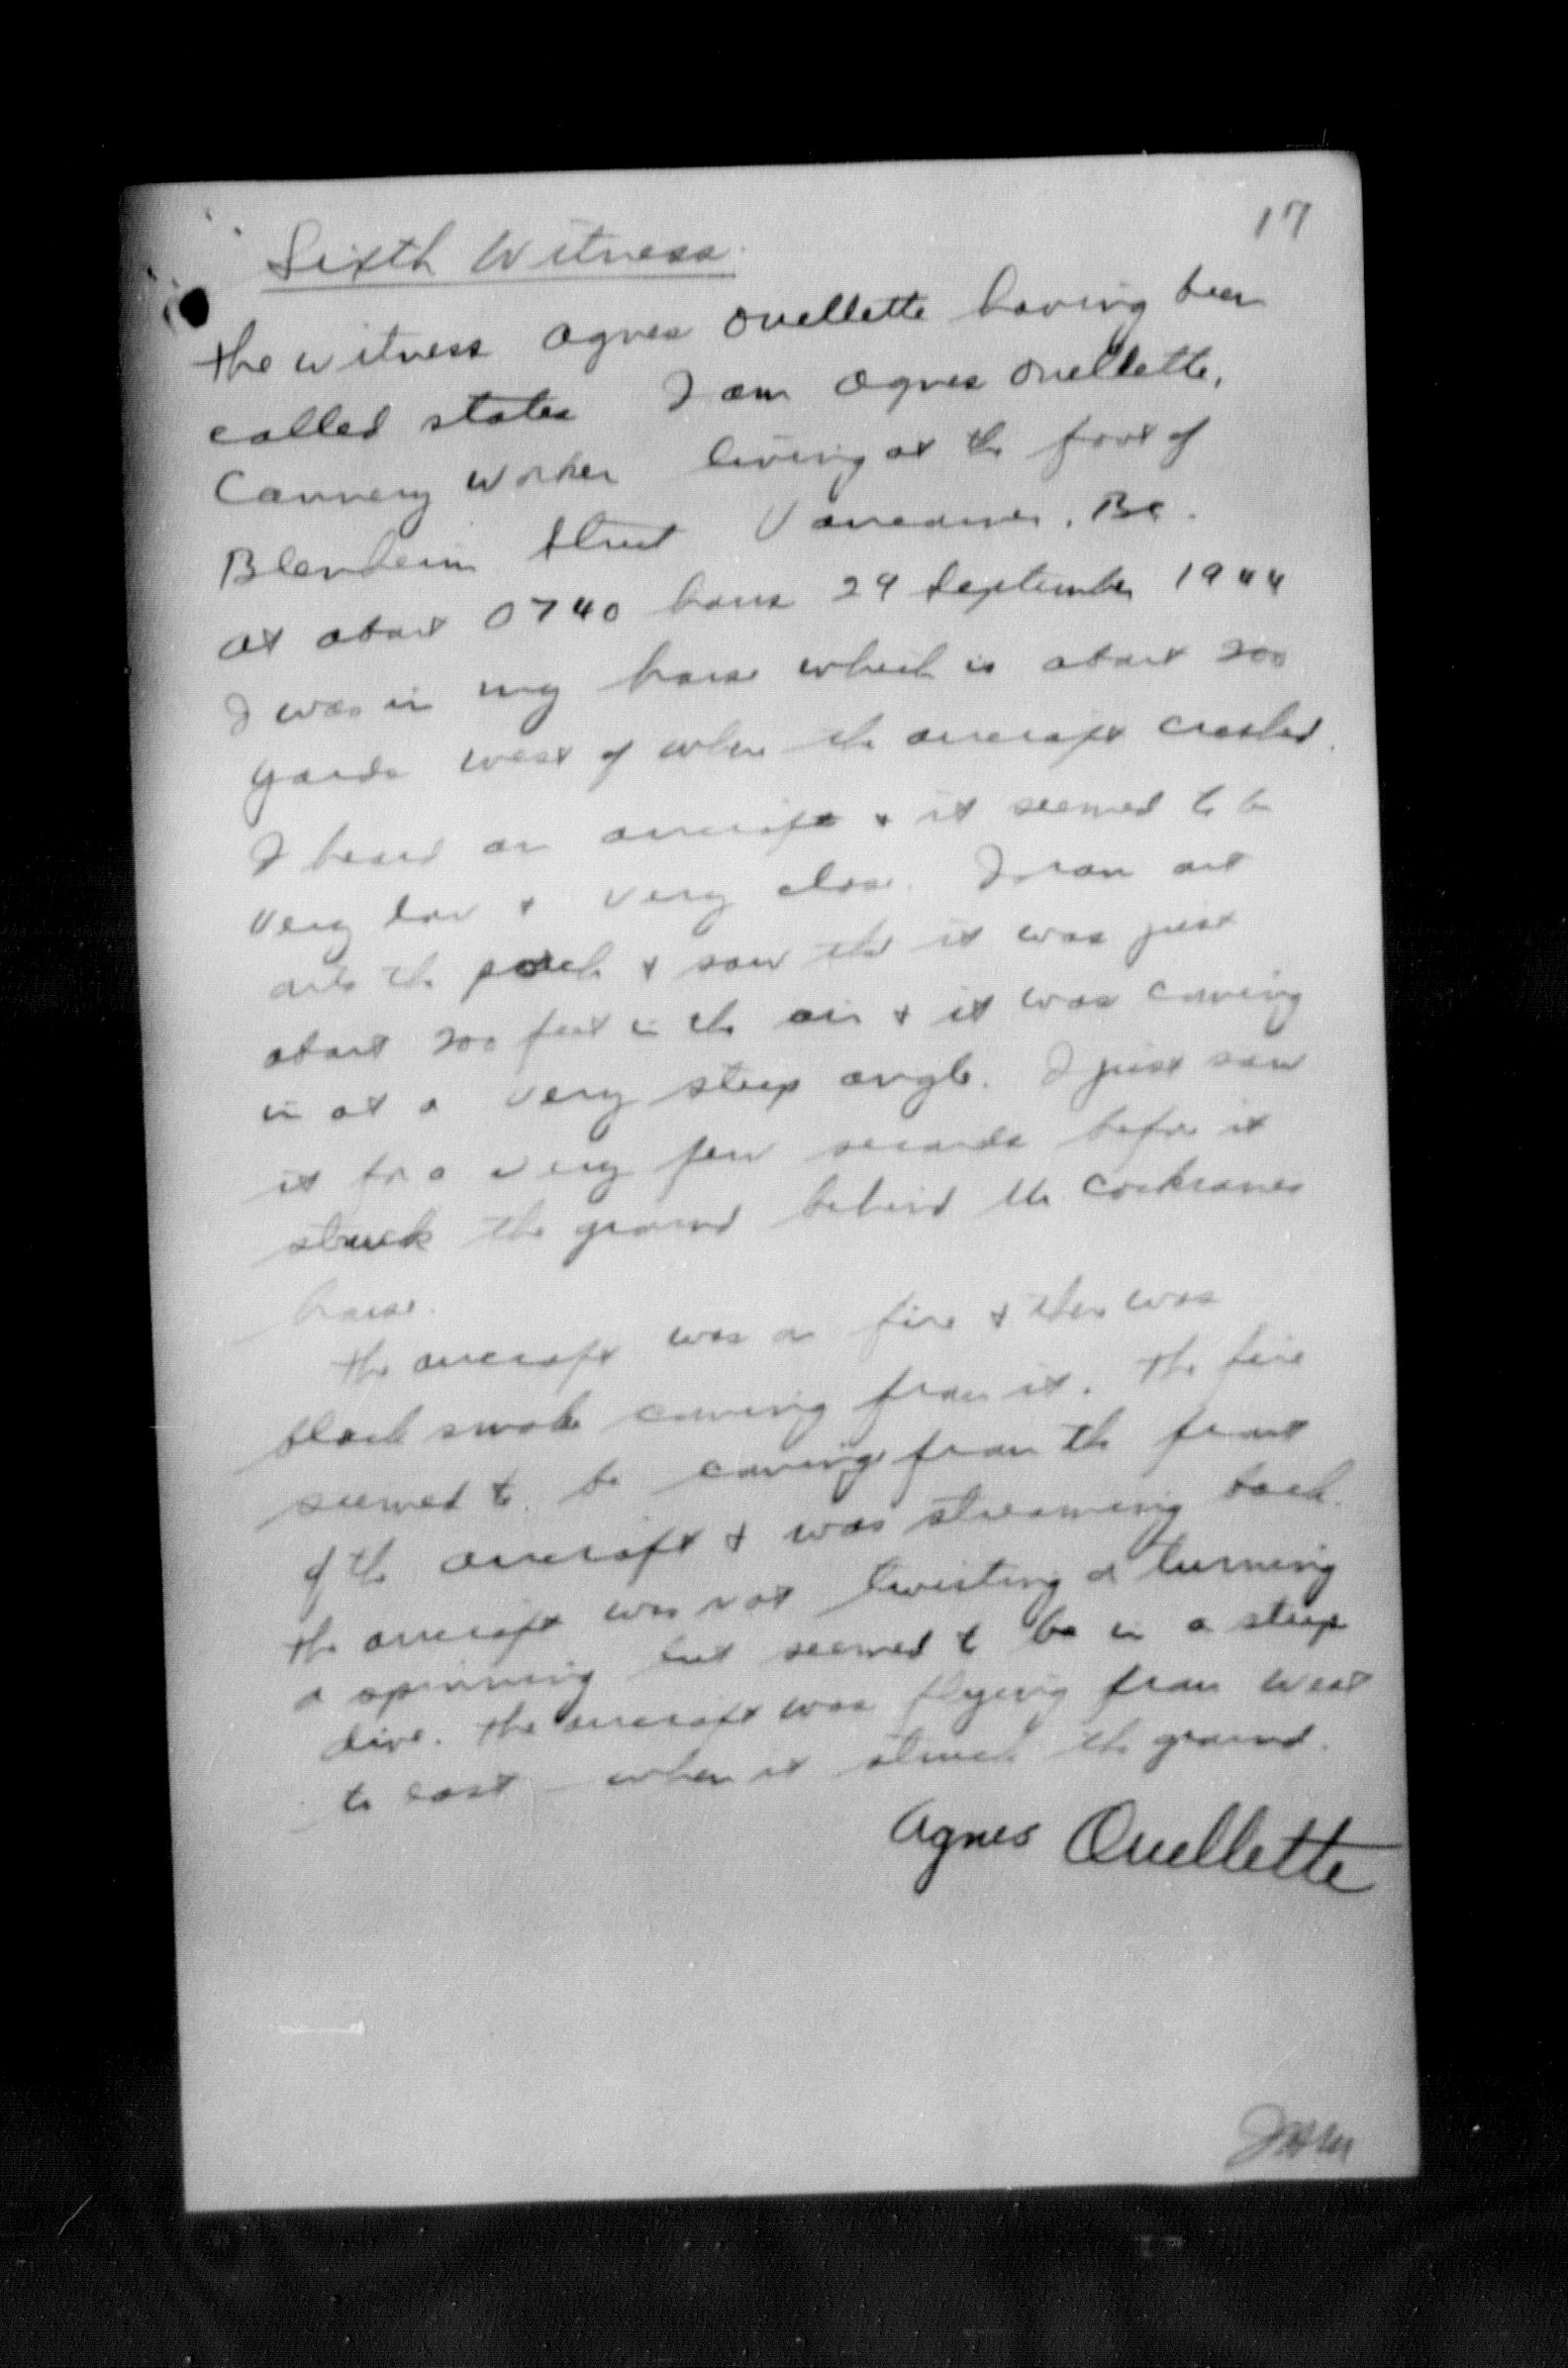 17
Sixth Witness.
the witness Agnes Ouellette having been
called states I am Agnes Ouellette,
Cannery Worker living at the foot of
Blenheim Street Vancouver, BC.
at about 0740 hours 29 September 1944
I was in my house which is about 200
yards west of where the aircraft crashed.
I heard an aircraft & it seemed to be
very low & very close. I ran out
onto the porch & saw that it was just
about 200 feet in the air & it was coming
in at a very steep angle. I just saw
it for a very few seconds before it
struck the ground behind the Cockranes
house.
the aircraft was on fire & there was
black smoke coming from it. the fire
seemed to be coming from the front
of the aircraft & was streaming back.
the aircraft was not twisting or turning
or spinning but seemed to be in a steep
dive. the aircraft was flying from west
to east when it struck the ground.
Agnes Ouellette